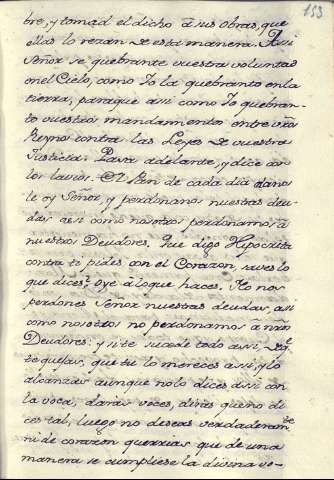 153
bre, y tomad el dicho à sus obras, que
ellas lo rezan de esta manera. Assi
Señor se quebrante vuestra voluntad
en el Cielo, como Yo la quebranto en la
tierra, paraque assi como Yo quebran-
to vuestros mandamientos entre vros
Reynos contra las Leyes de vuestra
Justicia. Passa adelante, y dice con
los lavios. El Pan de cada dia danos
le oy Señor, y perdonanos nuestras deu-
das assi como nosotros perdonamos à
nuestros Deudores. Que digo Hipocrita
contra ti pides con el Corazon, saves lo
que dices? oye à lo que haces. No nos
perdones Señor nuestras deudas, assi
como nosotros no perdonamos à nros
Deudores: y si te sucede todo assi, de q.
te quejas, que tu lo mereces assi, y lo
alcanzas aunque no lo dices assi con
la voca, daràs voces, diràs que no di
ces tal, luego no deseas verdaderamte
ni de corazon querrias que de una
manera se cumpliese la divina vo-